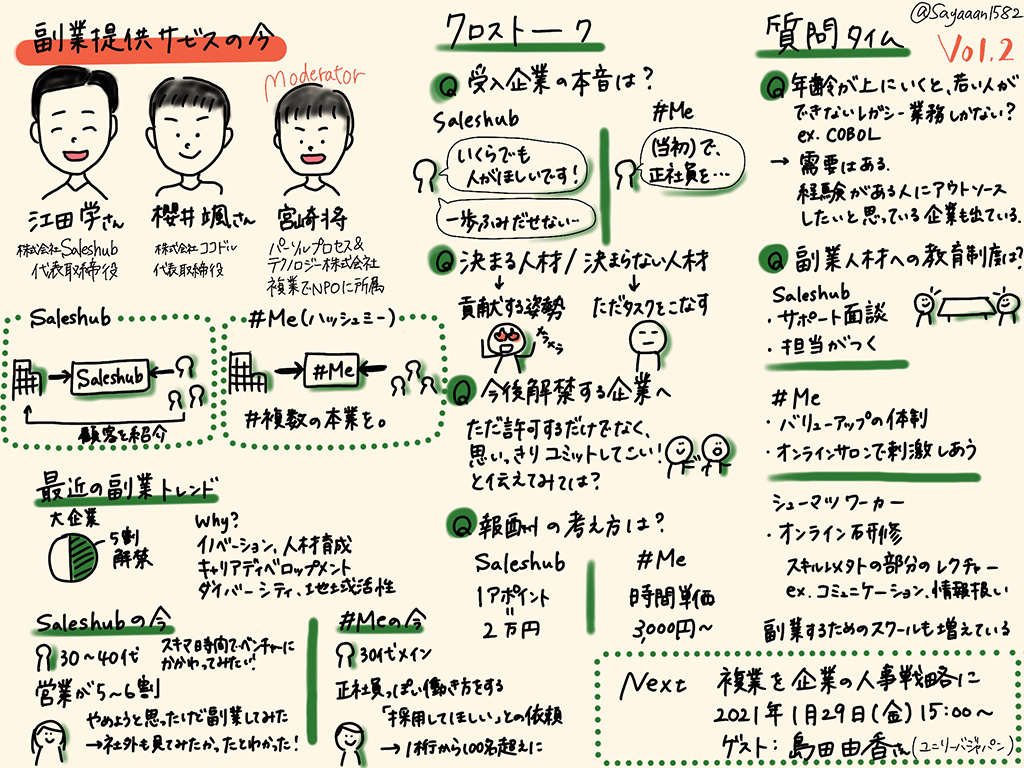 副業提供サービスの今
Moderator
江田 学さん
株式会社Saleshub
代表取締役
櫻井 颯さん
株式会社ココドル
代表取締役
宮崎 将
パーソルプロセス&
テクノロジー株式会社
複業でNPOに所属
Saleshub
Saleshub
顧客を紹介
#Me(ハッシュミー)
#Me
#複数の本業を。
最近の副業トレンド
大企業
5割
解禁
Why?
イノベーション、人材育成
キャリアディベロップメント
ダイバーシティ、地域活性
Saleshubの今
30～40代
スキマ時間でベンチャーに
かかわってみたい!
営業が5～6割
やめようと思ったけど副業してみた
→社外も見てみたかったとわかった!
#Meの今
30代メイン
正社員っぽい働き方をする
「採用してほしい」との依頼
→1桁から100名超えに
クロストーク
Q 受入企業の本音は?
Saleshub
いくらでも
人がほしいです!
一歩ふみだせない…
#Me
(当初)で、
正社員を…
Q 決まる人材/決まらない人材
貢献する姿勢
メラメラ
ただタスクをこなす
Q 今後解禁する企業へ
ただ許可するだけでなく、
思いっきりコミットしてこい!
と伝えてみては?
Q 報酬の考え方は?
Saleshub
1アポイント
=
2万円
#Me
時間単価
3,000円～
@Sayaaan1582
質問タイム
Vol.2
Q 年齢が上にいくと、若い人が
できないレガシー業務しかない?
ex. COBOL
→ 需要はある.
経験がある人にアウトソース
したいと思っている企業も出ている.
Q 副業人材への教育制度は?
Saleshub
・サポート面談
・担当がつく
#Me
・バリューアップの体制
・オンラインサロンで刺激しあう
シューマツワーカー
・オンライン研修
スキルとメタトの部分のレクチャー
ex. コミュニケーション、情報扱い
副業するためのスクールも増えている
Next 複業を企業の人事戦略に
2021年1月29日(金)15:00～
ゲスト: 島田由香さん(ユニリーバジャパン)